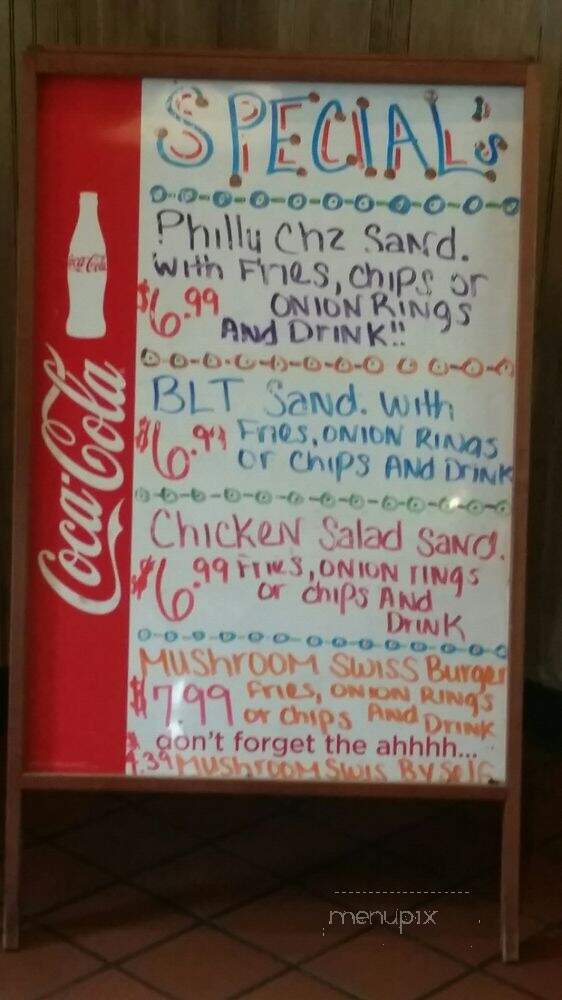 SPECIAL's
Philly Chz Sand.
with Fries, Chips or
$6.99 ONION RINGS
AND DRINK!!
BLT Sand. With
$6.99 Fries, ONION RINGS
or Chips AND DRINK
Chicken Salad Sand.
$6.99 Fries, ONION rings
or chips AND
DRINK
MUSHROOM SWISS Burger
$7.99 Fries, ONION RINGS
or Chips AND DRINK
don't forget the ahhhh...
$4.39 MUSHROOM SWIS By Self
Coca-Cola
Coca-Cola
menupix